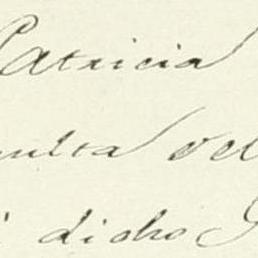 Patricia
multa del
dicho